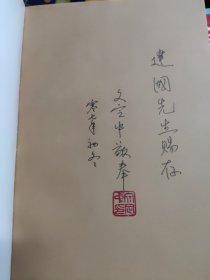 建國先生賜存
文宝中敬奉
零七年初冬